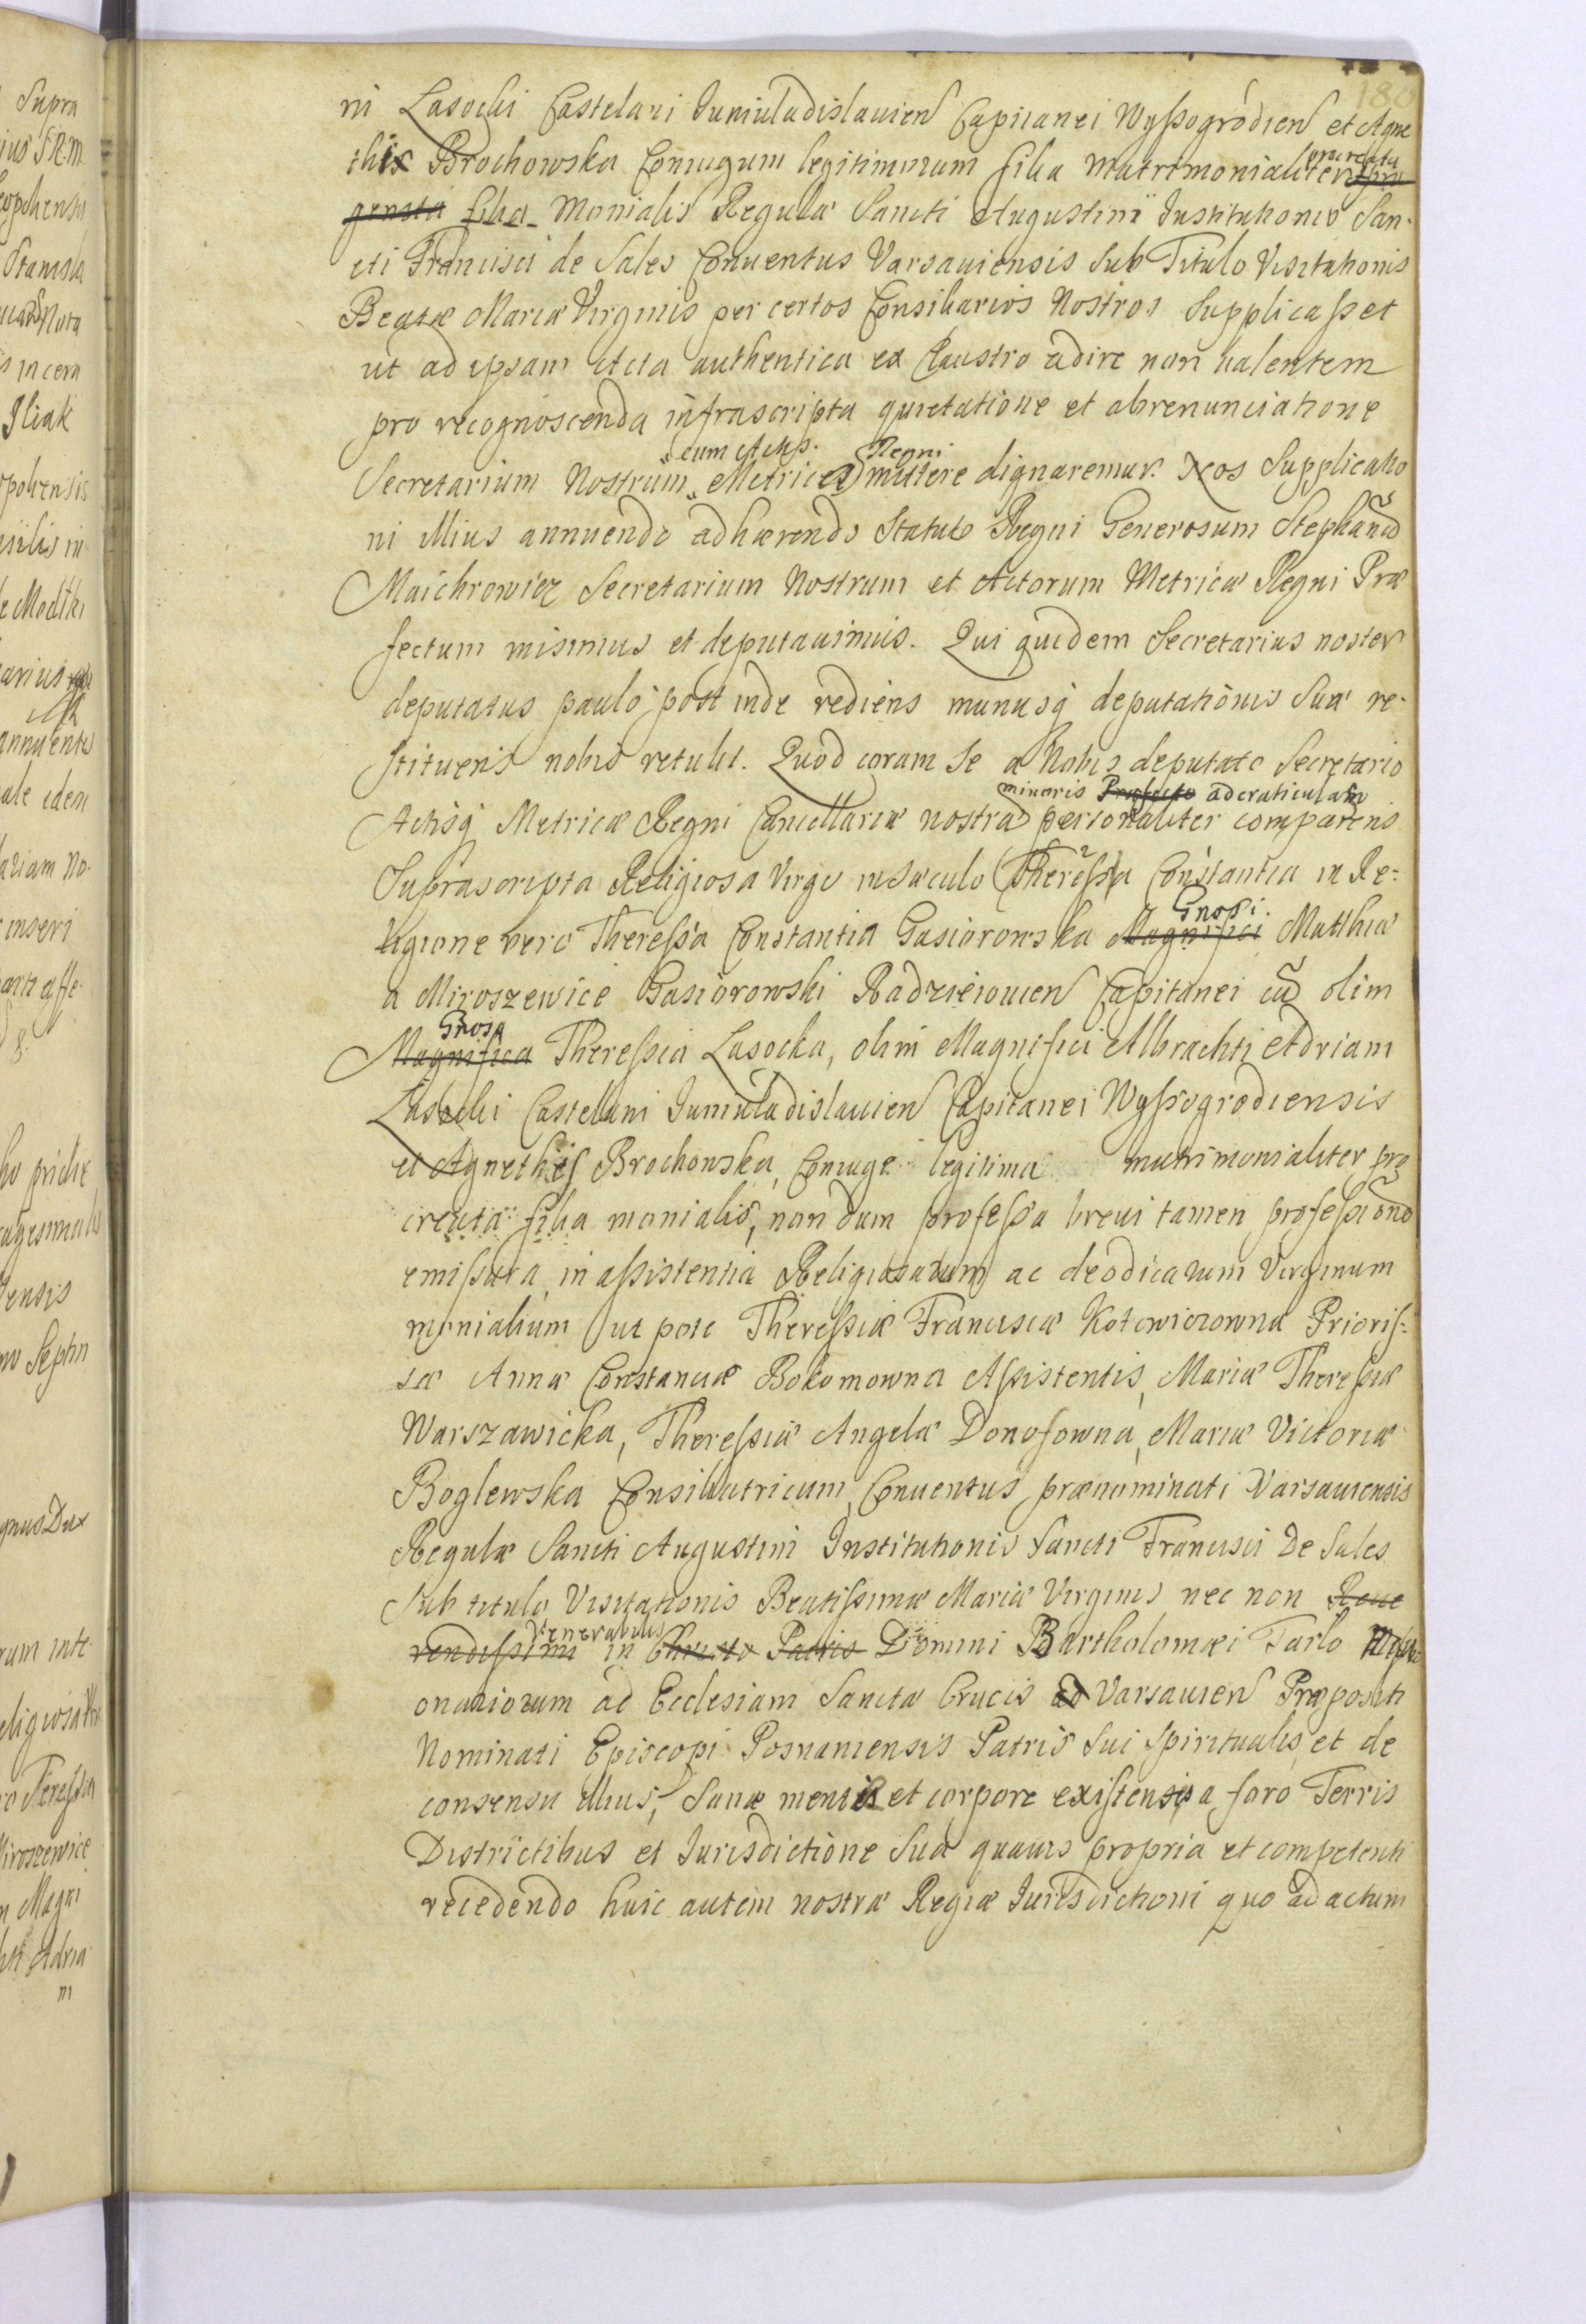 180
ni Lasocki Castelani Iuniuladislauien Capitanei Wyßogrodien et Agne
this Brochowska Coniugum legitimorum filia matrimonialiter procreata pro
genita filia Monialis Regulæ Sancti Augustini Institutionis San-
cti Francisci de Sales Conuentus Varsauiensis Sub Titulo Visitationis
Beatæ Mariæ Virginis per certos Consiliarios Nostros Supplicaßet
ut ad ipsam Acta authentica ex Claustro adire non ualentem
pro recognoscenda infrascripta quietatione et abrenunciatione
Secretarium Nostrum cum Actis Metrices Regni mittere dignaremur. Nos Supplicatio
ni illius annuendo adhærendo Statuto Regni Generosum Stephanũ
Maichrowicz Secretarium Nostrum et Actorum Metricæ Regni Præ
fectum misimus et deputauimus. Qui quidem Secretarius noster
deputatus paulò post inde rediens munusq deputationis Suæ re-
stituens nobis retulit. Quod coram Se a Nobis deputato Secretario
minoris Præfecto ad craticulam
Actisq Metricæ Regni Cancellariæ nostræ personaliter comparens
Suprascripta Religiosa Virgo in sæculo Thereßia Constantia in Re-
ligione vero Thereßa Constantia Gasiorowska Magnifici Gnosi. Matthiæ
a Miroszewice Gasiorowski Radzieiouien Capitanei cũ olim
Gnosa
Magnifica Thereßia Lasocka, olim Magnifici Albrachti Adriani
Lasocki Castellani Iuniuladislauien Capitanei Wyßogrodiensis
et Agnethis Brochowska, Coniuge legitima matrimonialiter pro
creata filia monialis, nondum profeßa breui tamen profeßionẽ
emißura, in aßistentia Religiosarum ac deodicarum Virginum
monialium ut pote Thereßiæ Franciscæ Kotowiczowna Prioris-
sæ Annæ Constanciæ Bokomowna Aßistentis, Mariæ Thereßiæ
Warszawicka, Thereßiæ Angelæ Donosowna, Mariæ Victoriæ
Boglewska Consiliatricum, Conuentus prænominati Varsauiensis
Regulæ Sancti Augustini Institutionis Sancti Francisci De Sales
Sub titulo Visitationis Beatißimæ Mariæ Virginis nec non Reue
rendißimi Venerabilis in Christo Patris Domini Bartholomæi Tarlo Mißi
onariorum ad Ecclesiam Sanctæ Crucis ad Varsauien Præpositi
Nominati Episcopi Posnaniensis Patris Sui Spiritualis et de
consensu illius, Sana mentis et corpore existensq a foro Terris
Districtibus et Iurisdictione Sua quauis propria et competenti
recedendo huic autem nostræ Regiæ Iurisdictioni quo ad actum